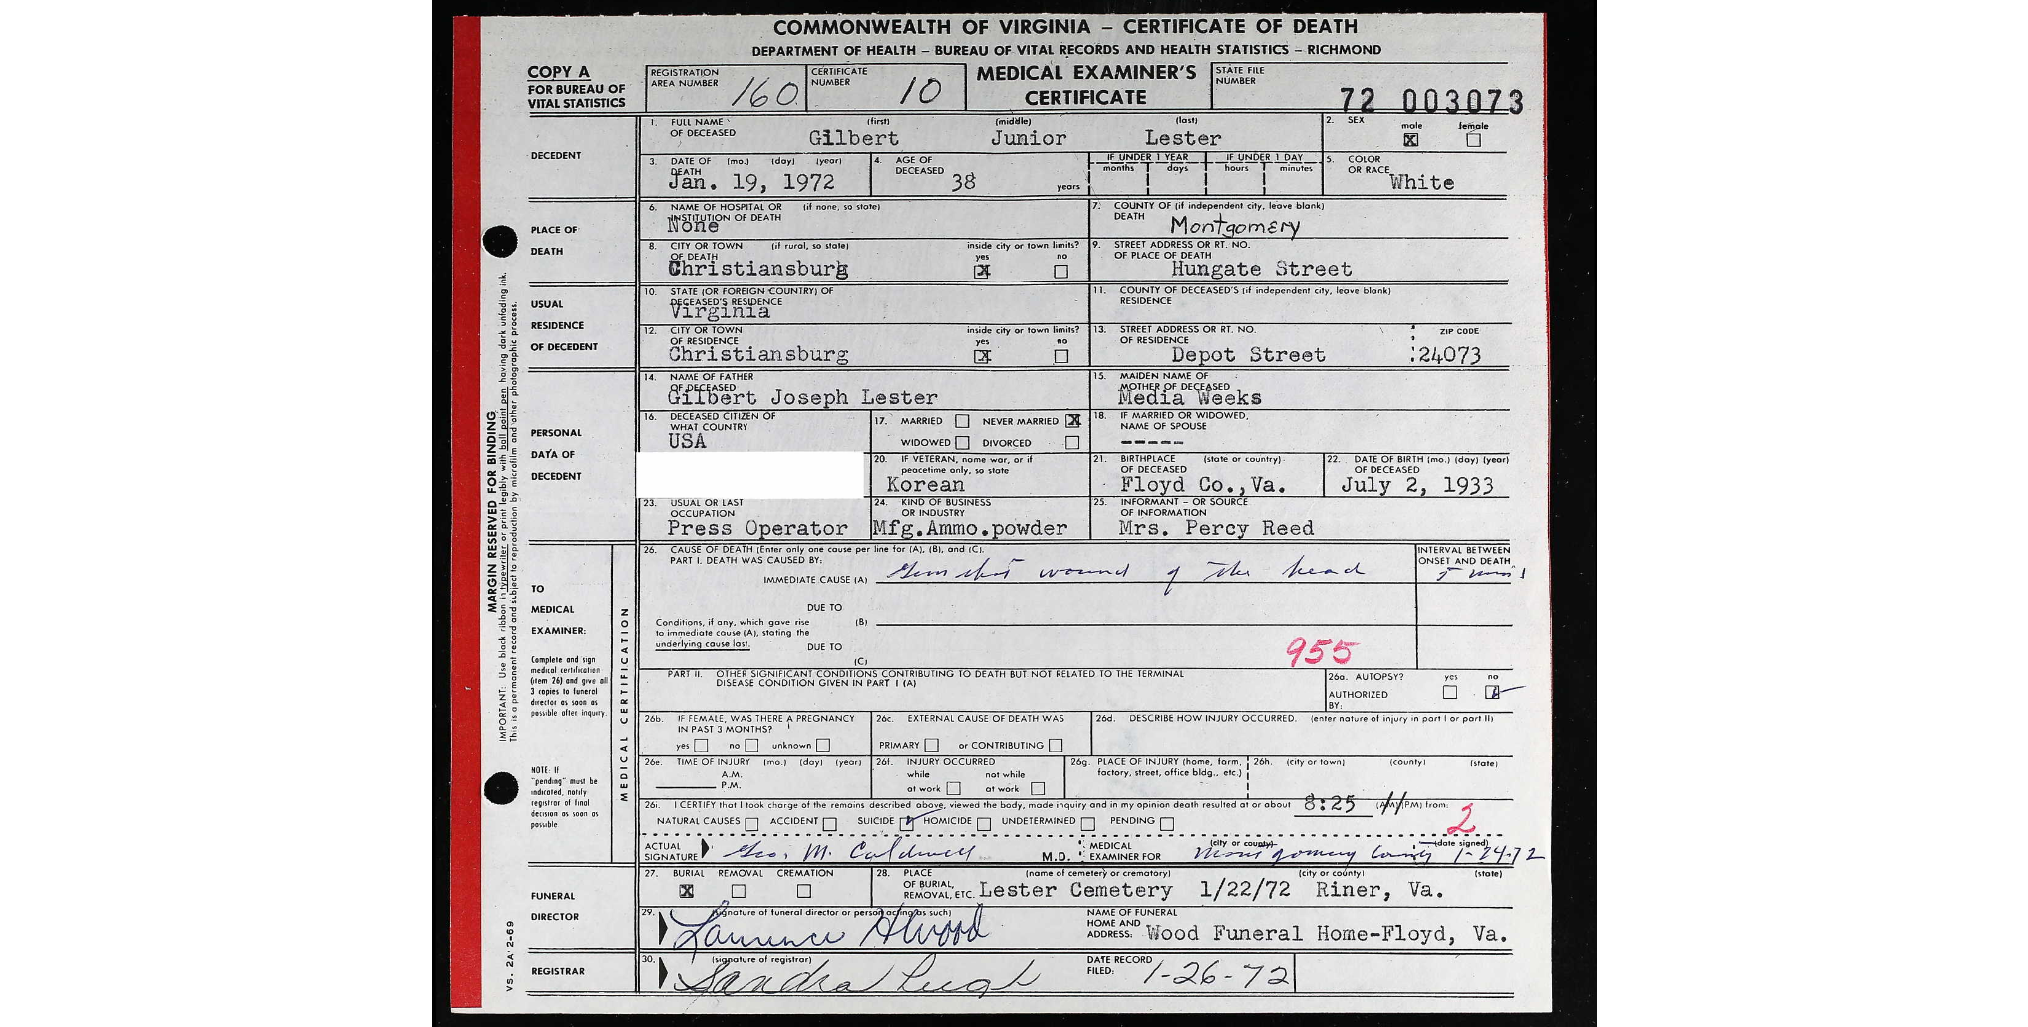 COMMONWEALTH OF VIRGINIA – CERTIFICATE OF DEATH
DEPARTMENT OF HEALTH – BUREAU OF VITAL RECORDS AND HEALTH STATISTICS – RICHMOND
COPY A
FOR BUREAU OF
VITAL STATISTICS
REGISTRATION
AREA NUMBER 160
CERTIFICATE
NUMBER 10
MEDICAL EXAMINER'S
CERTIFICATE
STATE FILE
NUMBER
72 003073
DECEDENT
1. FULL NAME (first) (middle) (last)
OF DECEASED Gilbert Junior Lester
2. SEX male female
X
3. DATE OF (mo.) (day) (year)
DEATH
Jan. 19, 1972
4. AGE OF
DECEASED 38 years
IF UNDER 1 YEAR
months days
IF UNDER 1 DAY
hours minutes
5. COLOR
OR RACE White
PLACE OF
DEATH
6. NAME OF HOSPITAL OR (if none, so state)
INSTITUTION OF DEATH
None
7. COUNTY OF (if independent city, leave blank)
DEATH Montgomery
8. CITY OR TOWN (if rural, so state) inside city or town limits?
OF DEATH yes no
Christiansburg X
9. STREET ADDRESS OR RT. NO.
OF PLACE OF DEATH
Hungate Street
USUAL
RESIDENCE
OF DECEDENT
10. STATE (OR FOREIGN COUNTRY) OF
DECEASED'S RESIDENCE
Virginia
11. COUNTY OF DECEASED'S (if independent city, leave blank)
RESIDENCE
12. CITY OR TOWN inside city or town limits?
OF RESIDENCE yes no
Christiansburg X
13. STREET ADDRESS OR RT. NO. ZIP CODE
OF RESIDENCE
Depot Street 24073
PERSONAL
DATA OF
DECEDENT
14. NAME OF FATHER
OF DECEASED
Gilbert Joseph Lester
15. MAIDEN NAME OF
MOTHER OF DECEASED
Media Weeks
16. DECEASED CITIZEN OF
WHAT COUNTRY
USA
17. MARRIED NEVER MARRIED X
WIDOWED DIVORCED
18. IF MARRIED OR WIDOWED,
NAME OF SPOUSE
-----
20. IF VETERAN, name war, or if
peacetime only, so state
Korean
21. BIRTHPLACE (state or country)
OF DECEASED
Floyd Co.,Va.
22. DATE OF BIRTH (mo.) (day) (year)
OF DECEASED
July 2, 1933
23. USUAL OR LAST
OCCUPATION
Press Operator
24. KIND OF BUSINESS
OR INDUSTRY
Mfg.Ammo.powder
25. INFORMANT – OR SOURCE
OF INFORMATION
Mrs. Percy Reed
TO
MEDICAL
EXAMINER:
Complete and sign
medical certification
(item 26) and give all
3 copies to funeral
director as soon as
possible after inquiry.
NOTE: If
"pending" must be
indicated, notify
registrar of final
decision as soon as
possible
MEDICAL CERTIFICATION
26. CAUSE OF DEATH (Enter only one cause per line for (A), (B), and (C).
PART I. DEATH WAS CAUSED BY:
IMMEDIATE CAUSE (A) Gun shot wound of the head
INTERVAL BETWEEN
ONSET AND DEATH
5
DUE TO
Conditions, if any, which gave rise (B)
to immediate cause (A), stating the
underlying cause last. DUE TO
(C)
955
PART II. OTHER SIGNIFICANT CONDITIONS CONTRIBUTING TO DEATH BUT NOT RELATED TO THE TERMINAL
DISEASE CONDITION GIVEN IN PART I (A)
26a. AUTOPSY? yes no
AUTHORIZED
BY:
26b. IF FEMALE, WAS THERE A PREGNANCY
IN PAST 3 MONTHS?
yes no unknown
26c. EXTERNAL CAUSE OF DEATH WAS
PRIMARY or CONTRIBUTING
26d. DESCRIBE HOW INJURY OCCURRED. (enter nature of injury in part I or part II)
26e. TIME OF INJURY (mo.) (day) (year)
A.M.
P.M.
26f. INJURY OCCURRED
while not while
at work at work
26g. PLACE OF INJURY (home, farm,
factory, street, office bldg., etc.)
26h. (city or town) (county) (state)
26i. I CERTIFY that I took charge of the remains described above, viewed the body, made inquiry and in my opinion death resulted at or about 8:25 (AM)(PM) from:
NATURAL CAUSES ACCIDENT SUICIDE HOMICIDE UNDETERMINED PENDING
2
ACTUAL
SIGNATURE Geo. M. Caldwell M.D.
MEDICAL (city or county) (date signed)
EXAMINER FOR Montgomery County 1-24-72
FUNERAL
DIRECTOR
27. BURIAL REMOVAL CREMATION
X
28. PLACE (name of cemetery or crematory) (city or county) (state)
OF BURIAL,
REMOVAL, ETC. Lester Cemetery 1/22/72 Riner, Va.
29. (signature of funeral director or person acting as such)
NAME OF FUNERAL
HOME AND
ADDRESS: Wood Funeral Home-Floyd, Va.
REGISTRAR
30. (signature of registrar)
Sandra
DATE RECORD
FILED: 1-26-72
MARGIN RESERVED FOR BINDING
IMPORTANT: Use black ribbon in typewriter or print legibly with ball point pen having dark unfading ink.
This is a permanent record and subject to reproduction by microfilm and other photographic process.
VS. 2A 2-69